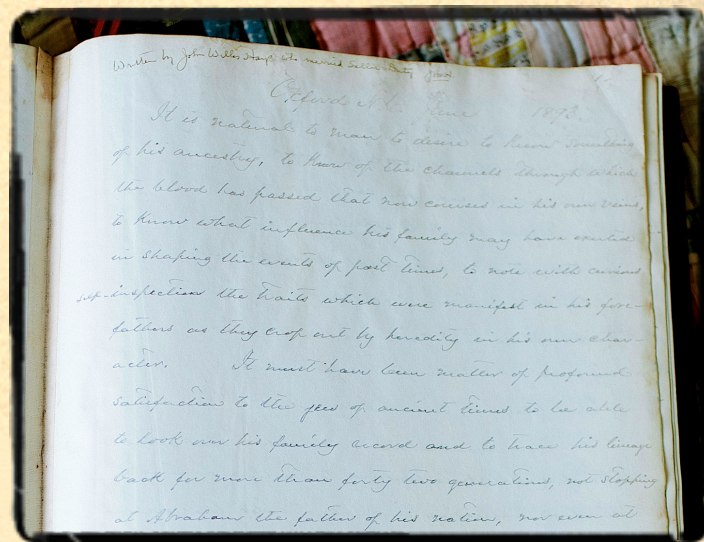 Written by John Willis Hays who married Sallie
Oxford N.C. June 1893
It is natural to man to desire to know something
of his ancestry, to know of the channels through which
the blood has passed that now courses in his own veins,
to know what influence his family may have exerted
in shaping the events of past times, to note with curious
self-inspection the traits which were manifest in his fore-
fathers as they crop out by heredity in his own char-
acter. It must have been matter of profound
satisfaction to the Jew of ancient times to be able
to look over his family record and to trace his lineage
back for more than forty two generations, not stopping
at Abraham the father of his nation, nor even at